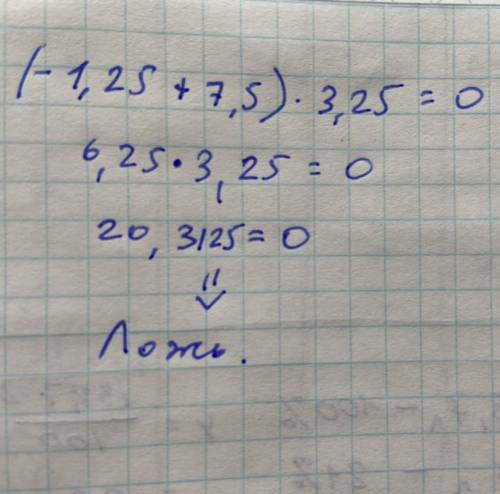 (-1,25 + 7,5) · 3,25 = 0
6,25 · 3,25 = 0
20,3125 = 0
⇓
Ложь.